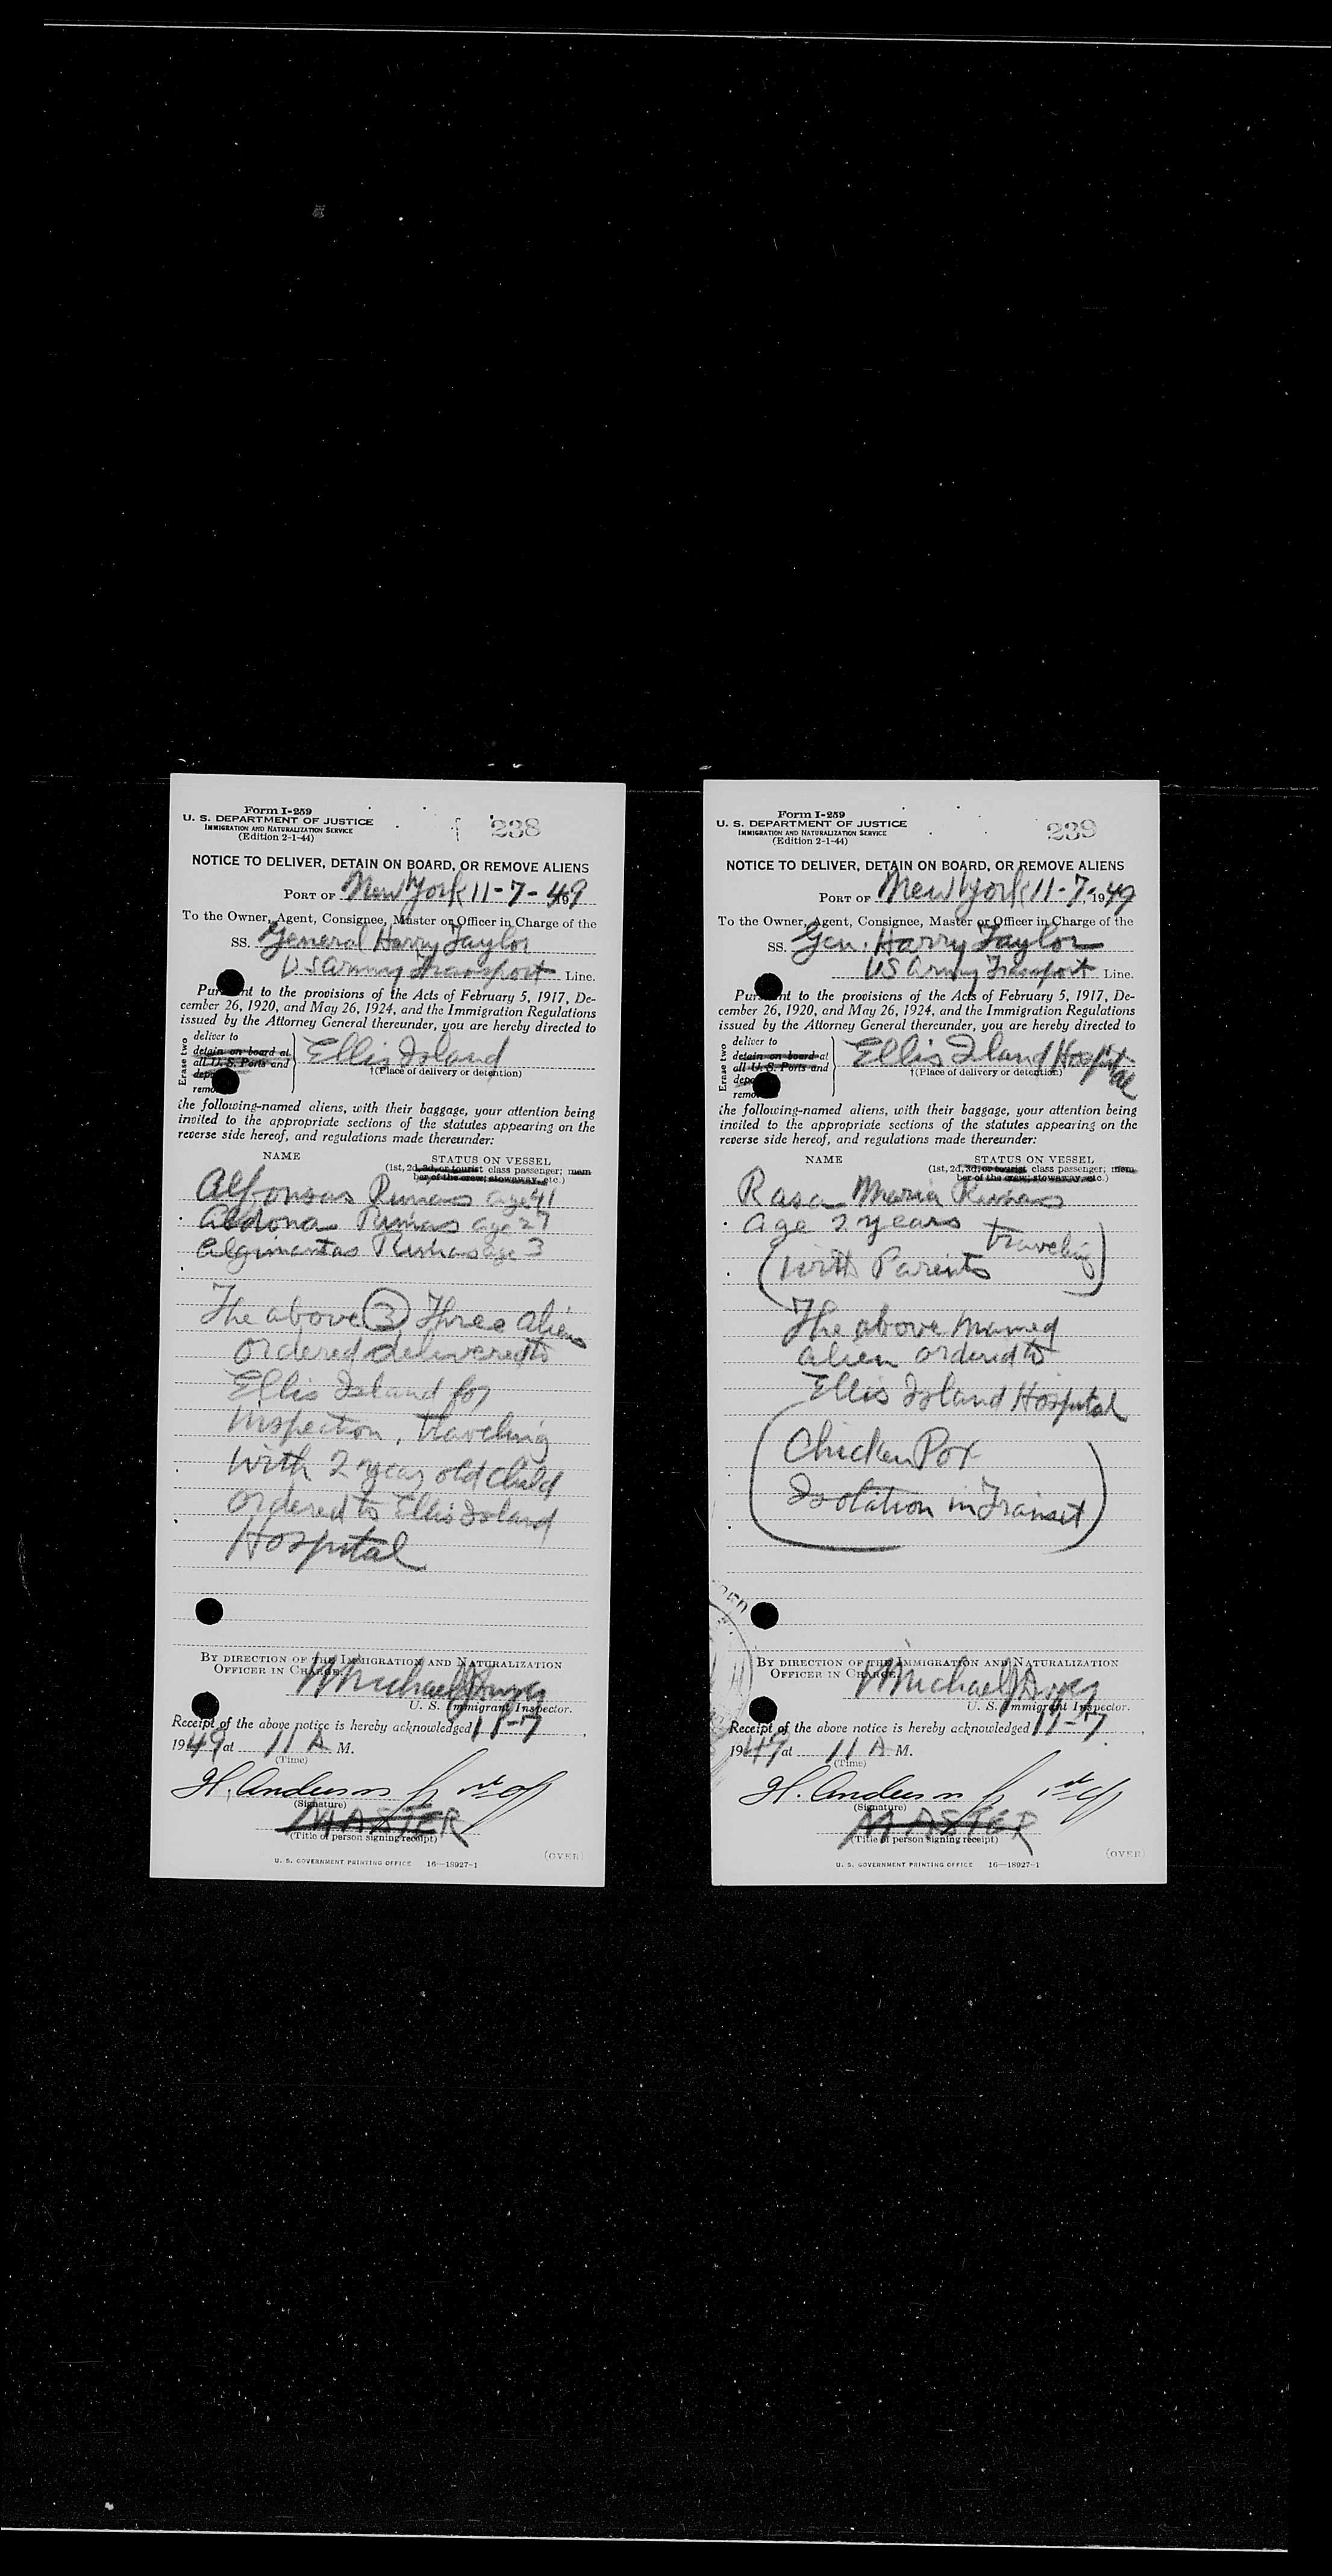 Form I-259
U. S. DEPARTMENT OF JUSTICE
IMMIGRATION AND NATURALIZATION SERVICE
(Edition 2-1-44)
238
NOTICE TO DELIVER, DETAIN ON BOARD, OR REMOVE ALIENS
PORT OF New York 11-7-49
To the Owner, Agent, Consignee, Master or Officer in Charge of the
SS. General Harry Taylor
US Army Transport Line.
Pursuant to the provisions of the Acts of February 5, 1917, De-
cember 26, 1920, and May 26, 1924, and the Immigration Regulations
issued by the Attorney General thereunder, you are hereby directed to
Erase two
deliver to
detain on board at
all U. S. Ports and
Ellis Island
†(Place of delivery or detention)
the following-named aliens, with their baggage, your attention being
invited to the appropriate sections of the statutes appearing on the
reverse side hereof, and regulations made thereunder:
NAME STATUS ON VESSEL
(1st, 2d, 3d, or tourist class passenger; mem-
ber of the crew; stowaway, etc.)
Alfonsas Rimas age 41
Aldona Rimas age 27
Algimantas Rimas age 3
The above 3 Three aliens
ordered delivered to
Ellis Island for
inspection, traveling
with 2 year old child
ordered to Ellis Island
Hospital
BY DIRECTION OF THE IMMIGRATION AND NATURALIZATION
OFFICER IN CHARGE.
Michael J Dwyer
U. S. Immigrant Inspector.
Receipt of the above notice is hereby acknowledged 11-7
1949 at 11 A M.
(Time)
H. Anderson
(Signature)
MASTER
(Title of person signing receipt)
U. S. GOVERNMENT PRINTING OFFICE 16—18927-1
(OVER)
Form I-259
U. S. DEPARTMENT OF JUSTICE
IMMIGRATION AND NATURALIZATION SERVICE
(Edition 2-1-44)
239
NOTICE TO DELIVER, DETAIN ON BOARD, OR REMOVE ALIENS
PORT OF New York 11-7-, 1949
To the Owner, Agent, Consignee, Master or Officer in Charge of the
SS. Gen. Harry Taylor
US Army Transport Line.
Pursuant to the provisions of the Acts of February 5, 1917, De-
cember 26, 1920, and May 26, 1924, and the Immigration Regulations
issued by the Attorney General thereunder, you are hereby directed to
Erase two
deliver to
detain on board at
all U. S. Ports and
Ellis Island Hospital
†(Place of delivery or detention)
the following-named aliens, with their baggage, your attention being
invited to the appropriate sections of the statutes appearing on the
reverse side hereof, and regulations made thereunder:
NAME STATUS ON VESSEL
(1st, 2d, 3d, or tourist class passenger; mem-
ber of the crew; stowaway, etc.)
Rasa Maria Rimas
age 2 years traveling
(with Parents)
The above named
alien ordered to
Ellis Island Hospital
(Chicken Pox
Isolation in Transit)
BY DIRECTION OF THE IMMIGRATION AND NATURALIZATION
OFFICER IN CHARGE.
Michael J Dwyer
U. S. Immigrant Inspector.
Receipt of the above notice is hereby acknowledged 11-7
1949 at 11 A M.
(Time)
H. Anderson
(Signature)
MASTER
(Title of person signing receipt)
U. S. GOVERNMENT PRINTING OFFICE 16—18927-1
(OVER)